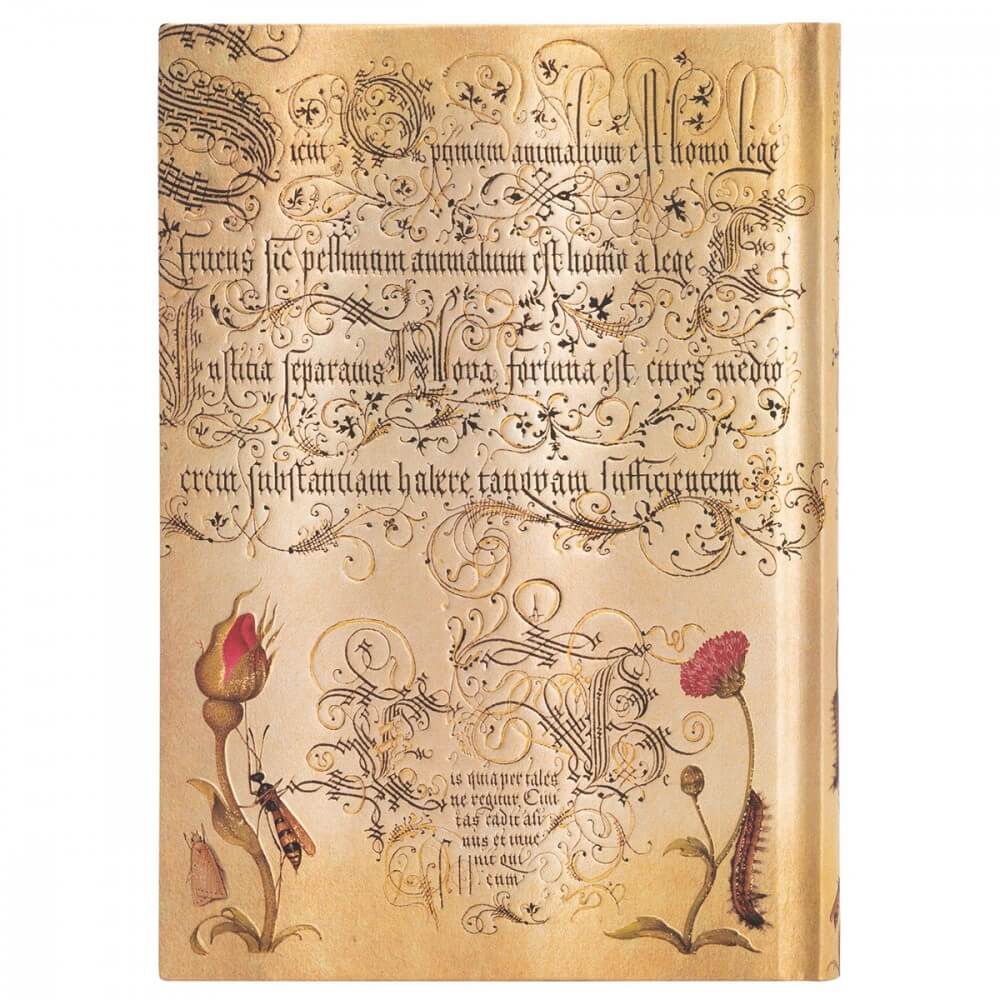 Sicut Optimum animalium est homo lege
fruens sic pessimum animalium est homo a lege Et
Iustitia separatus Nova fortuna est cives medio
crem substantiam habere tanqvam sufficientem
Bis quia per tales Be
ne regitur Civi
tas cadit ali
uus et inve
nit qui
cum